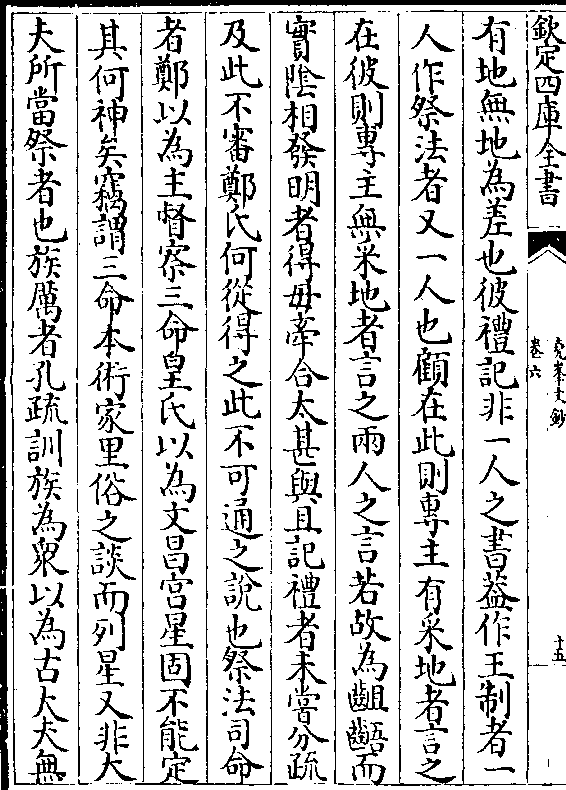 欽定四庫全書
堯峯文鈔
卷六
十五
有地無地為差也彼禮記非一人之書葢作王制者一
人作祭法者又一人也顧在此則專主有采地者言之
在彼則專主無采地者言之兩人之言若故為齟齬而
實陰相發明者得毋牽合太甚與且記禮者未嘗分疏
及此不審鄭氏何從得之此不可通之說也祭法司命
者鄭以為主督察三命皇氏以為文昌宮星固不能定
其何神矣竊謂三命本術家里俗之談而列星又非大
夫所當祭者也族厲者孔疏訓族為衆以為古大夫無